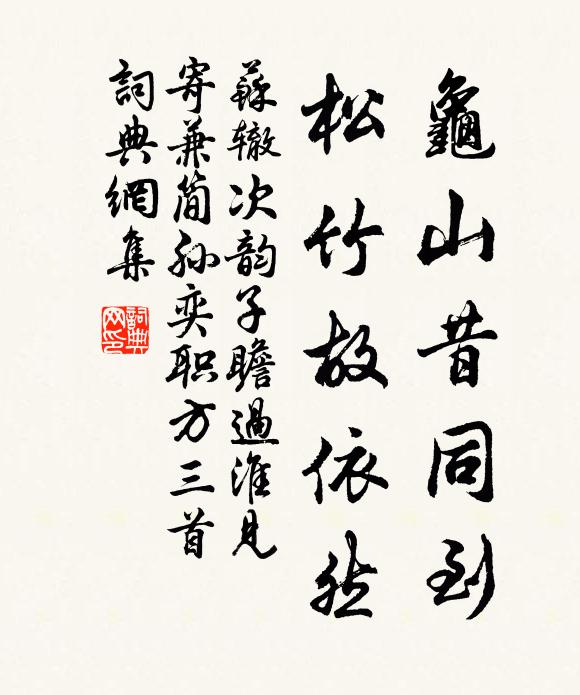 龜山昔同到
松竹故依然
蘇辙次韵子瞻過淮見
寄兼简孙奕职方三首
詞典網集
詞典网印